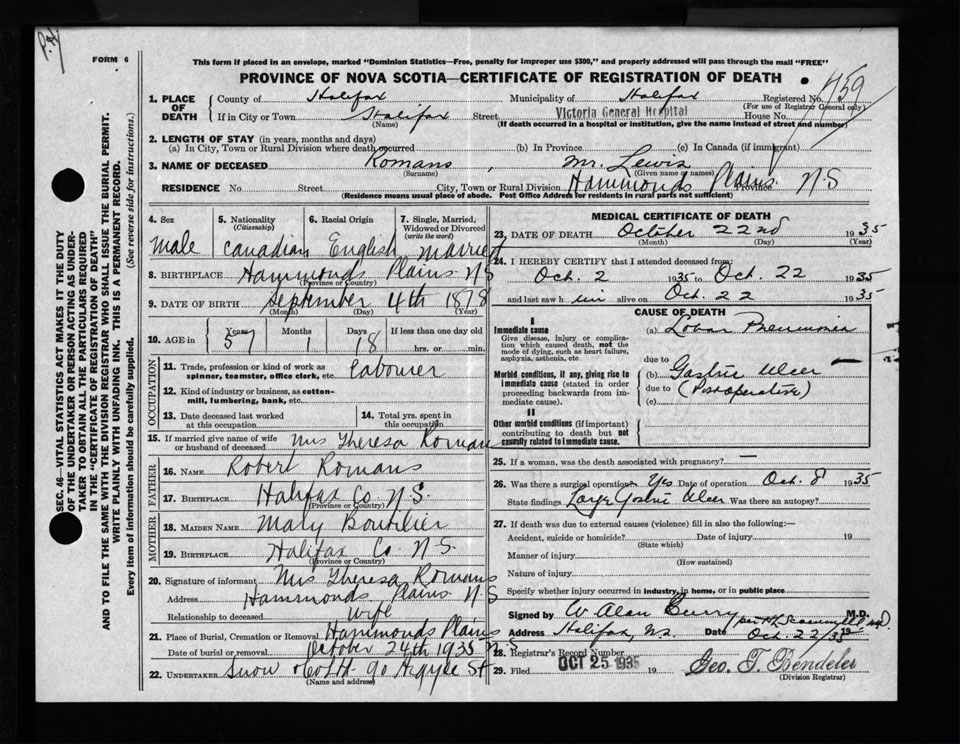 P. 2
FORM 6
This form if placed in an envelope, marked "Dominion Statistics—Free, penalty for improper use $300," and properly addressed will pass through the mail "FREE"
PROVINCE OF NOVA SCOTIA—CERTIFICATE OF REGISTRATION OF DEATH
SEC. 46—VITAL STATISTICS ACT MAKES IT THE DUTY
OF THE UNDERTAKER OR PERSON ACTING AS UNDER-
TAKER TO OBTAIN ALL THE PARTICULARS REQUIRED
IN THE "CERTIFICATE OF REGISTRATION OF DEATH"
AND TO FILE THE SAME WITH THE DIVISION REGISTRAR WHO SHALL ISSUE THE BURIAL PERMIT.
WRITE PLAINLY WITH UNFADING INK. THIS IS A PERMANENT RECORD.
Every item of information should be carefully supplied. (See reverse side for instructions.)
1. PLACE OF DEATH County of Halifax Municipality of Halifax Registered No. 459
(For use of Registrar General only)
If in City or Town Halifax Street Victoria General Hospital House No.
(Name) (If death occurred in a hospital or institution, give the name instead of street and number)
2. LENGTH OF STAY (in years, months and days)
(a) In City, Town or Rural Division where death occurred (b) In Province (c) In Canada (if immigrant)
3. NAME OF DECEASED Romans, Mr. Lewis
(Surname) (Given name or names)
RESIDENCE No. Street City, Town or Rural Division Hammonds Plains Province N S
(Residence means usual place of abode. Post Office Address for residents in rural parts not sufficient)
4. Sex male
5. Nationality (Citizenship) Canadian
6. Racial Origin English
7. Single, Married, Widowed or Divorced (write the word) Married
8. BIRTHPLACE Hammonds Plains N S
(Province or Country)
9. DATE OF BIRTH September 4th 1878
(Month) (Day) (Year)
10. AGE in Years 57 Months 1 Days 18 If less than one day old
hrs. or min.
OCCUPATION
11. Trade, profession or kind of work as spinner, teamster, office clerk, etc. Labourer
12. Kind of industry or business, as cotton-mill, lumbering, bank, etc.
13. Date deceased last worked at this occupation
14. Total yrs. spent in this occupation
15. If married give name of wife or husband of deceased Mrs Theresa Romans
FATHER
16. NAME Robert Romans
17. BIRTHPLACE Halifax Co. N.S.
(Province or Country)
MOTHER
18. MAIDEN NAME Mary Boutilier
19. BIRTHPLACE Halifax Co. N.S.
(Province or Country)
20. Signature of informant Mrs Theresa Romans
Address Hammonds Plains N S
Relationship to deceased Wife
21. Place of Burial, Cremation or Removal Hammonds Plains
Date of burial or removal October 24th 1935 N S
22. UNDERTAKER Snow & Co Ltd 90 Argyle St
(Name and address)
MEDICAL CERTIFICATE OF DEATH
23. DATE OF DEATH October 22nd 1935
(Month) (Day) (Year)
24. I HEREBY CERTIFY that I attended deceased from:
Oct. 2 1935 to Oct. 22 1935
and last saw him alive on Oct. 22 1935
CAUSE OF DEATH
I
Immediate cause (a) Lobar Pneumonia
Give disease, injury or complication which caused death, not the mode of dying, such as heart failure, asphyxia, asthenia, etc.
due to
Morbid conditions, if any, giving rise to immediate cause (stated in order proceeding backwards from immediate cause). (b) Gastric Ulcer
due to (Post-operative)
(c)
II
Other morbid conditions (if important) contributing to death but not causally related to immediate cause.
25. If a woman, was the death associated with pregnancy? —
26. Was there a surgical operation? Yes Date of operation Oct. 8 1935
State findings Large Gastric Ulcer Was there an autopsy?
27. If death was due to external causes (violence) fill in also the following:—
Accident, suicide or homicide? Date of injury 19
(State which)
Manner of injury
(How sustained)
Nature of injury
Specify whether injury occurred in industry, in home, or in public place
Signed by W Alan Curry M.D.
Address Halifax, N.S. Date Oct. 22/35
28. Registrar's Record Number
29. Filed OCT 25 1935 19 Geo. T. Bendeler
(Division Registrar)